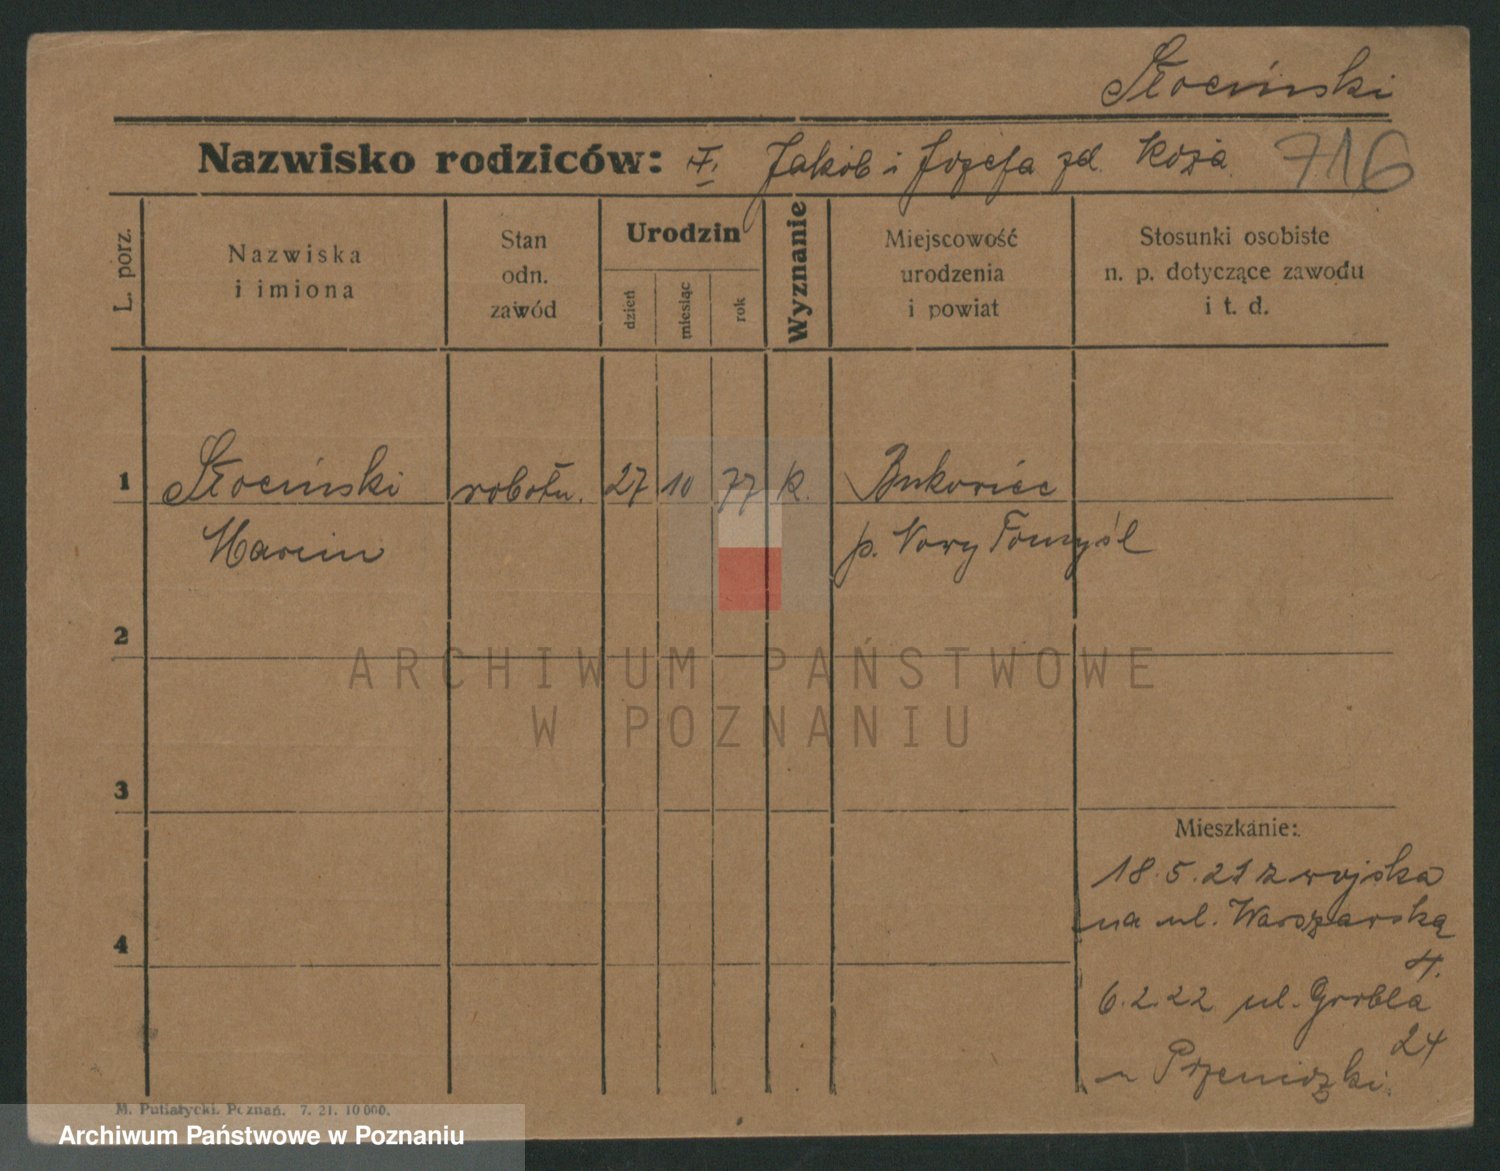 Słociński
Nazwisko rodziców: Jakób i Józefa zd. Koza 716
L. porz.
Nazwiska
i imiona
Stan
odn.
zawód
Urodzin
dzień
miesiąc
rok
Wyznanie
Miejscowość
urodzenia
i powiat
Stosunki osobiste
n. p. dotyczące zawodu
i t. d.
1 Słociński robotn. 27 10 77 k. Bukowiec
Marcin p. Nowy Tomyśl
2
ARCHIWUM PAŃSTWOWE
W POZNANIU
3
Mieszkanie:
18.5.21 z wojska
na ul. Warszawską
4
4.
6.2.22 ul. Grobla
24
M. Putiatycki. Poznań. 7. 21. 10 000.
Archiwum Państwowe w Poznaniu